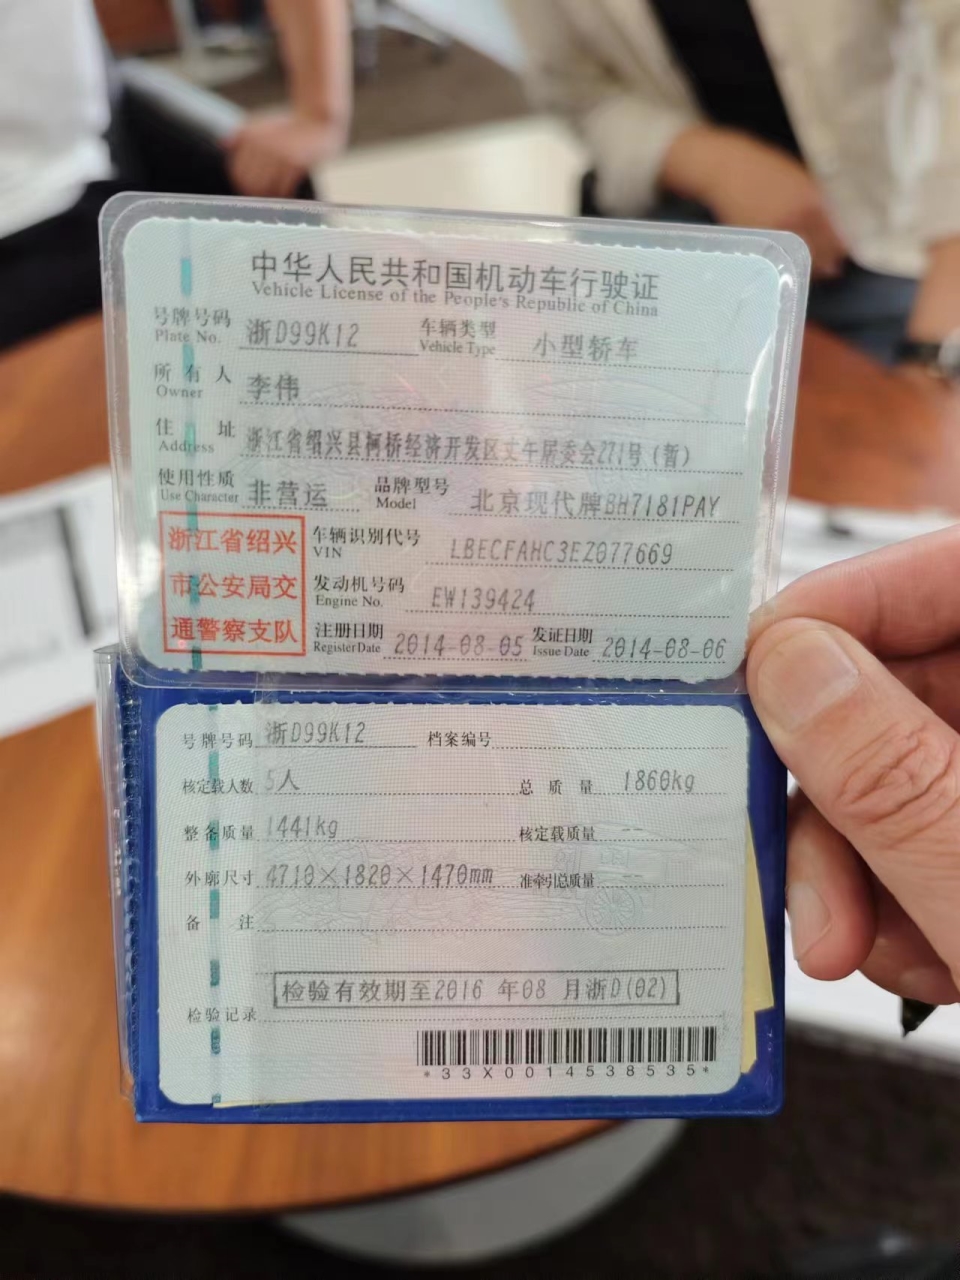 中华人民共和国机动车行驶证
Vehicle License of the People's Republic of China
号牌号码 浙D99K12 车辆类型 小型轿车
Plate No. Vehicle Type
所有人 李伟
Owner
住址 浙江省绍兴县柯桥经济开发区丈午居委会271号（暂）
Address
使用性质 非营运 品牌型号 北京现代牌BH7181PAY
Use Character Model
浙江省绍兴
市公安局交
通警察支队
车辆识别代号 LBECFAHC3EZ077669
VIN
发动机号码 EW139424
Engine No.
注册日期 2014-08-05 发证日期 2014-08-06
Register Date Issue Date
号牌号码 浙D99K12 档案编号
核定载人数 5人 总质量 1860kg
整备质量 1441kg 核定载质量 --
外廓尺寸 4710×1820×1470mm 准牵引总质量 --
备注
检验有效期至2016 年08 月浙D(02)
检验记录
*33X0014538535*